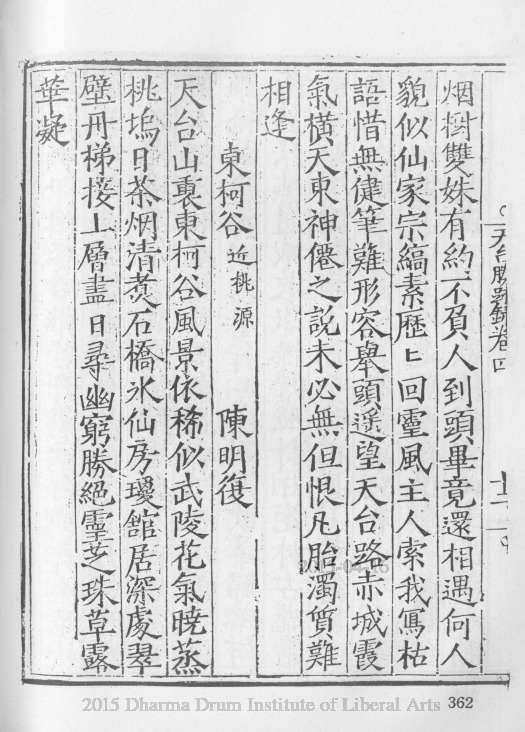 天台勝蹟錄卷四
烟樹雙姝有約不負人到頭畢竟還相遇何人
貌似仙家宗縞素歷匕回靈風主人索我寫枯
語惜無健筆難形容舉頭遥望天台路赤城霞
氣橫天東神僊之說未必無但恨凡胎濁質難
相逢
東柯谷近桃源 陳明復
天台山裏東柯谷風景依稀似武陵花氣暁蒸
桃塢日茶烟清煑石橋氷仙房瓊舘居深處翠
壁丹梯接上層盡日尋幽窮勝絕靈芝珠草露
華凝
2015 Dharma Drum Institute of Liberal Arts 362